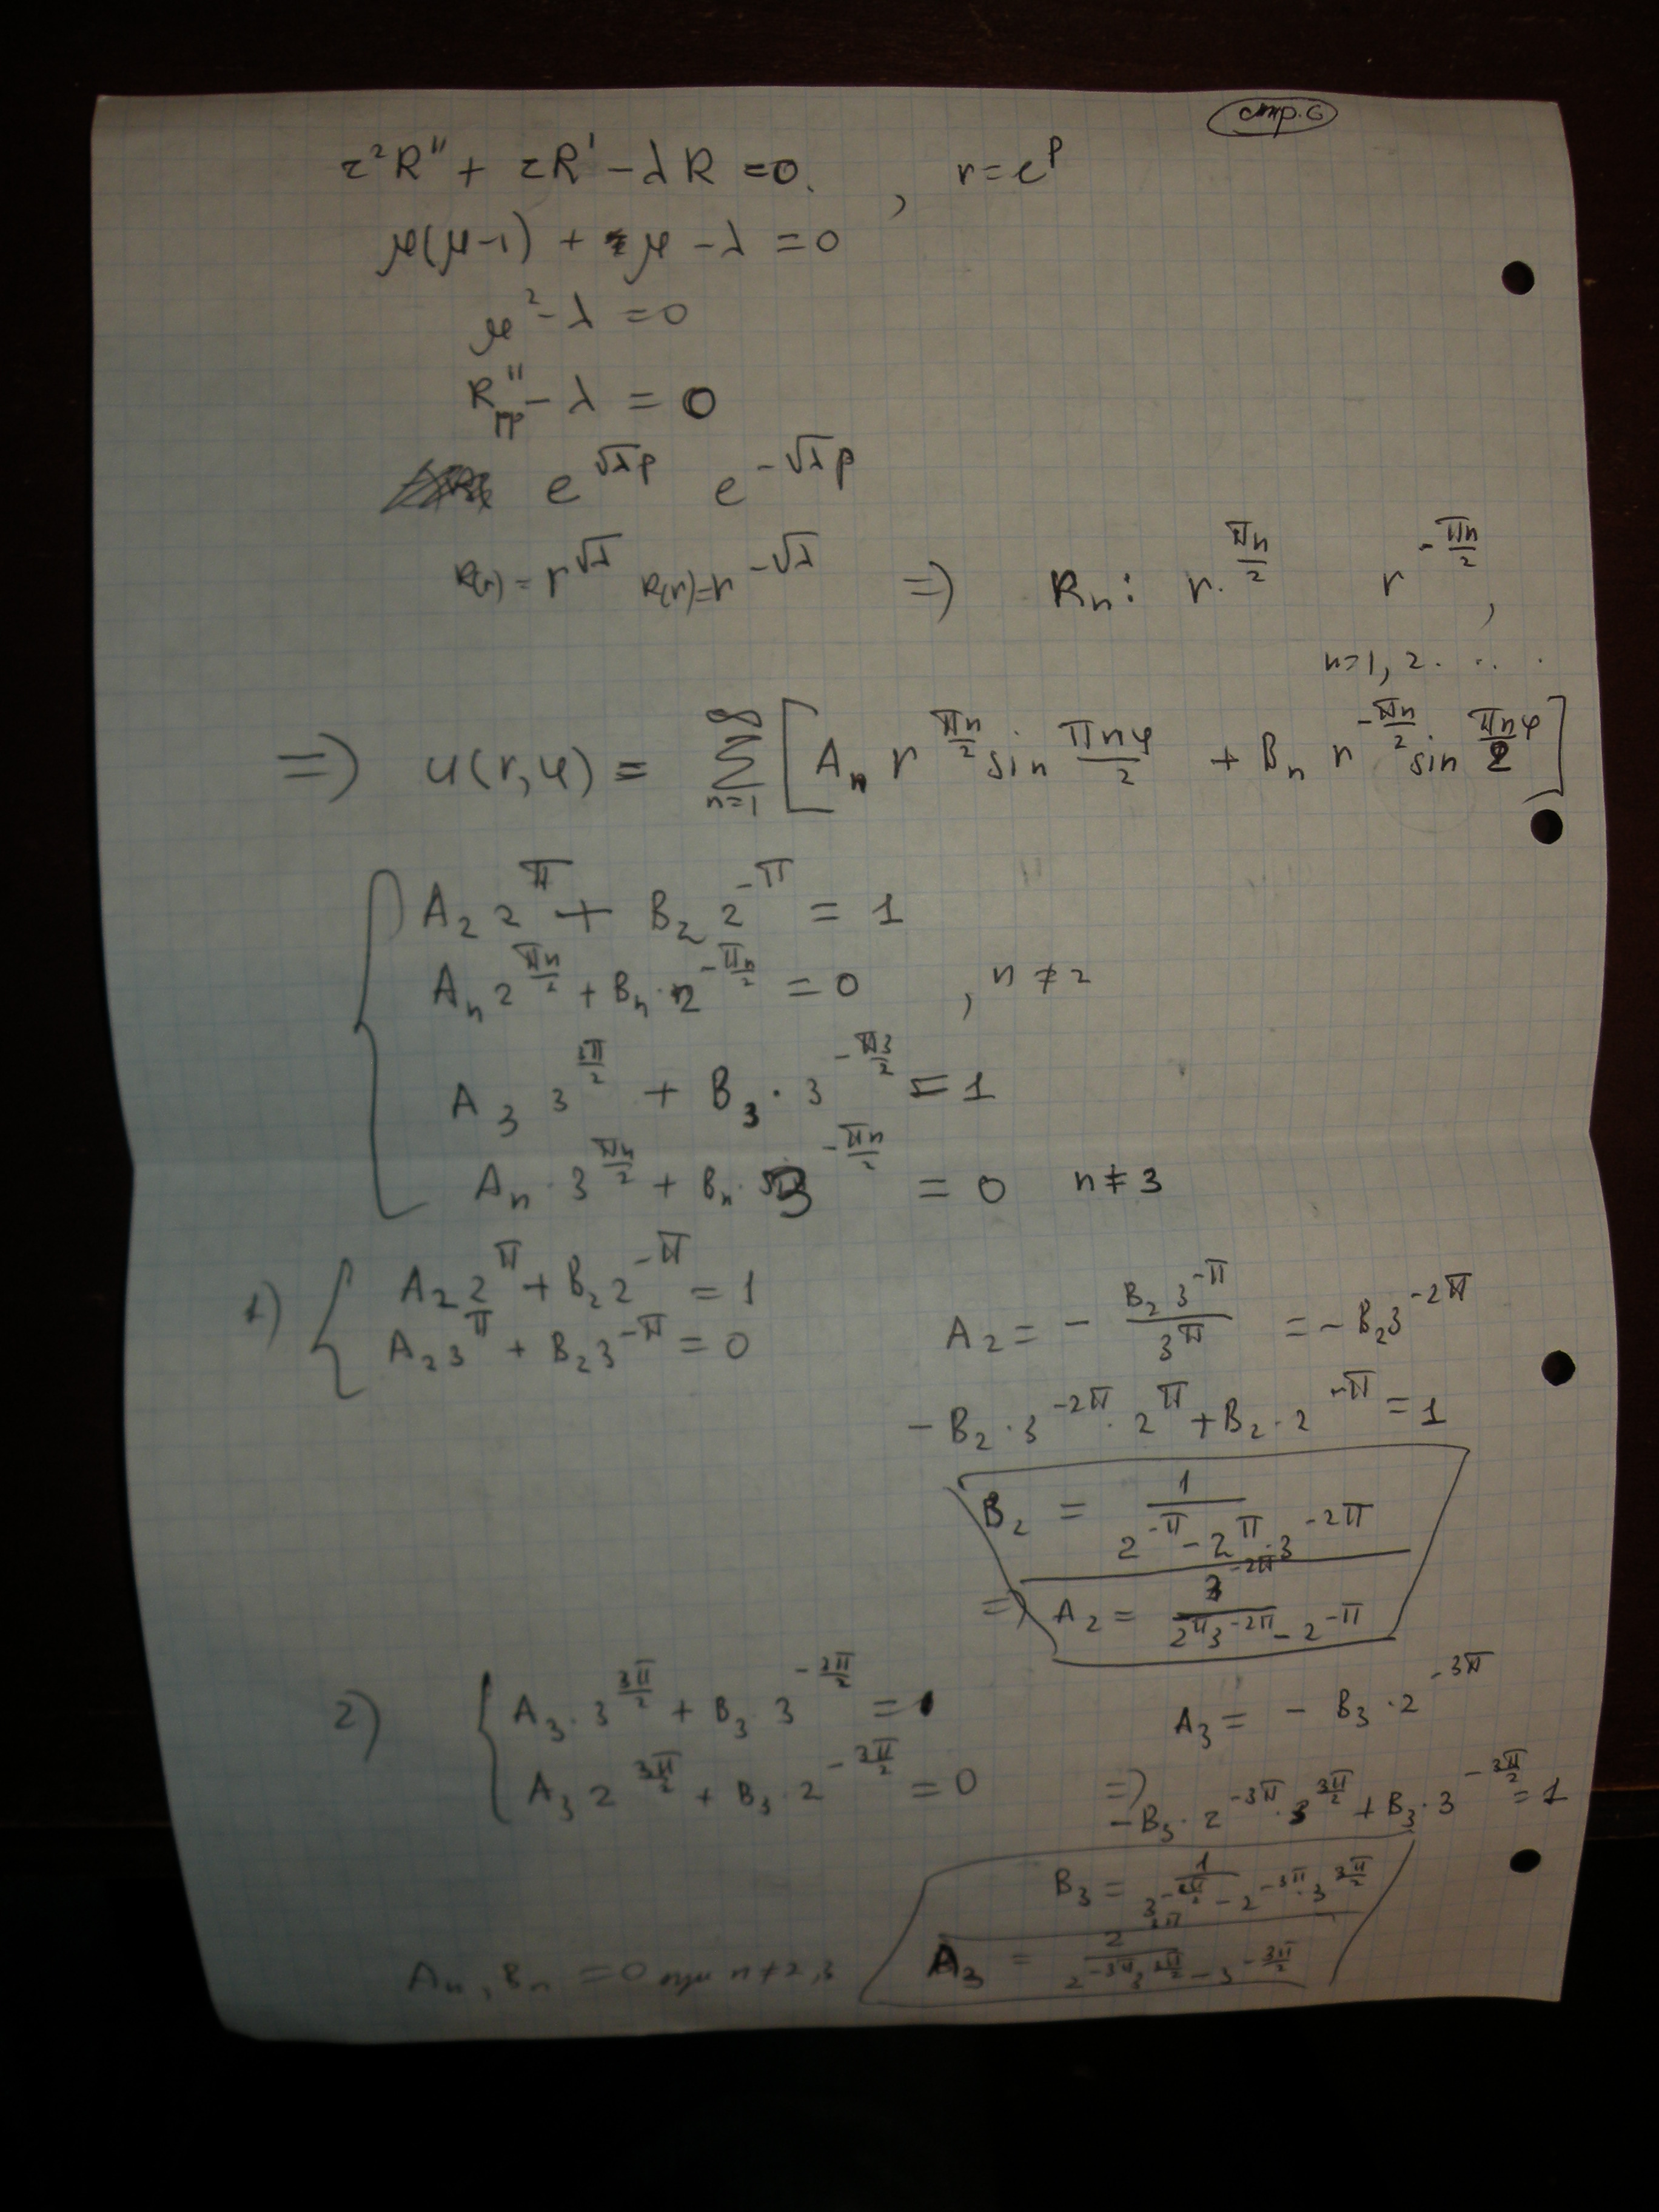 стр.6
r²R" + rR' − λR = 0. , r = e^ρ
μ(μ−1) + μ − λ = 0
μ² − λ = 0
R"_ρρ − λ = 0
e^{√λρ} e^{−√λρ}
R(r) = r^{√λ} R(r) = r^{−√λ} => R_n: r^{πn/2} r^{−πn/2},
n=1, 2. ...
=> u(r,φ) = ∑_{n=1}^{∞} [A_n r^{πn/2} sin πnφ/2 + B_n r^{−πn/2} sin πnφ/2]
A_2 2^π + B_2 2^{−π} = 1
A_n 2^{πn/2} + B_n · 2^{−πn/2} = 0 , n ≠ 2
A_3 3^{3π/2} + B_3 · 3^{−π3/2} = 1
A_n · 3^{πn/2} + B_n · 3^{−πn/2} = 0 n ≠ 3
1) { A_2 2^π + B_2 2^{−π} = 1
A_2 3^π + B_2 3^{−π} = 0
A_2 = − B_2 3^{−π} / 3^π = − B_2 3^{−2π}
− B_2 · 3^{−2π} · 2^π + B_2 · 2^{−π} = 1
B_2 = 1 / (2^{−π} − 2^π · 3^{−2π})
=> A_2 = 3^{−2π} / (2^π 3^{−2π} − 2^{−π})
2) { A_3 · 3^{3π/2} + B_3 · 3^{−3π/2} = 1
A_3 2^{3π/2} + B_3 · 2^{−3π/2} = 0
A_3 = − B_3 · 2^{−3π}
=>
− B_3 · 2^{−3π} · 3^{3π/2} + B_3 · 3^{−3π/2} = 1
B_3 = 1 / (3^{−3π/2} − 2^{−3π} · 3^{3π/2})
A_3 = 2^{−3π} / (2^{−3π} 3^{3π/2} − 3^{−3π/2})
A_n, B_n = 0 при n ≠ 2, 3